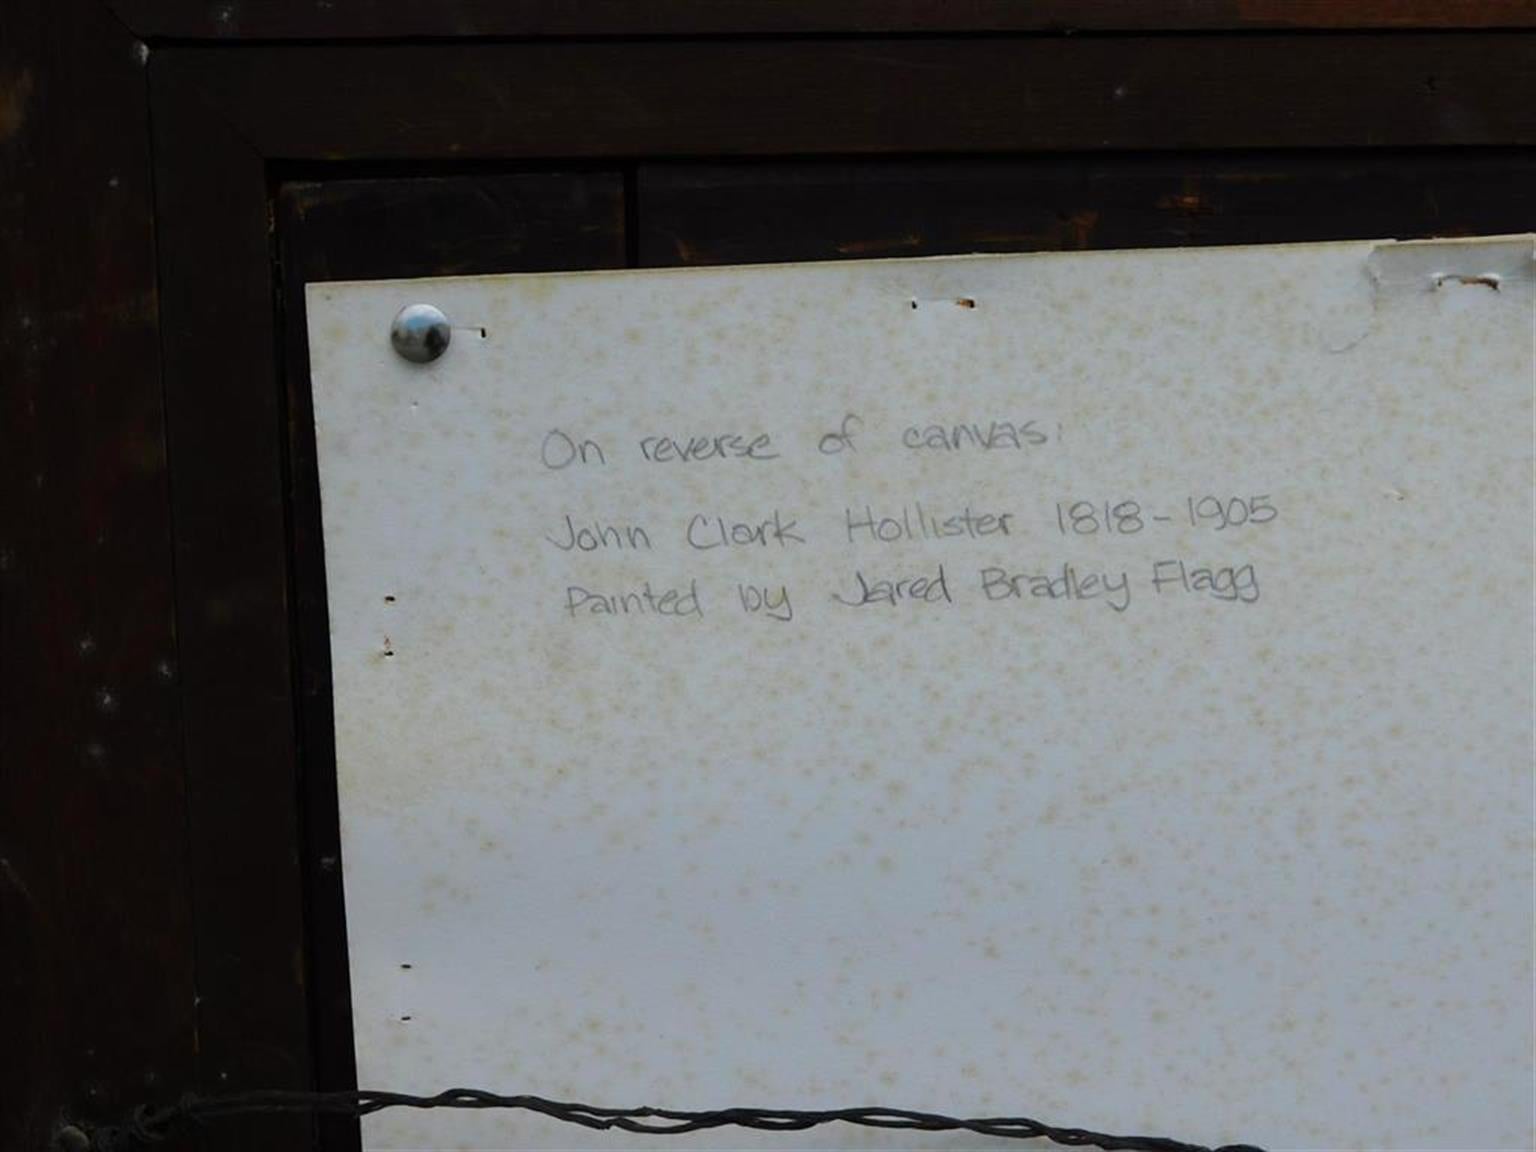 On reverse of canvas:
John Clark Hollister 1818-1905
Painted by Jared Bradley Flagg